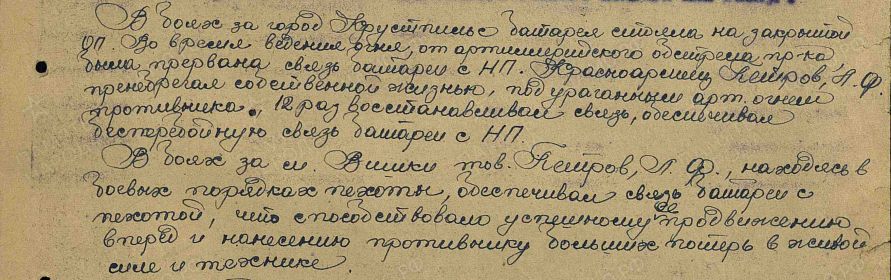 В боях за город Крустпилс батарея стояла на закрытой
ОП. Во время ведения огня, от артиллерийского обстрела пр-ка
была прервана связь батареи с НП. Красноармеец Петров, Л. Ф.
пренебрегая собственной жизнью, под ураганным арт. огнем
противника, 12 раз восстанавливал связь, обеспечивал
бесперебойную связь батареи с НП.
В боях за м. Вишки тов. Петров, Л. Ф., находясь в
боевых порядках пехоты, обеспечивал связь батареи с
пехотой, что способствовало успешному ее продвижению
вперед и нанесению противнику больших потерь в живой
силе и технике.